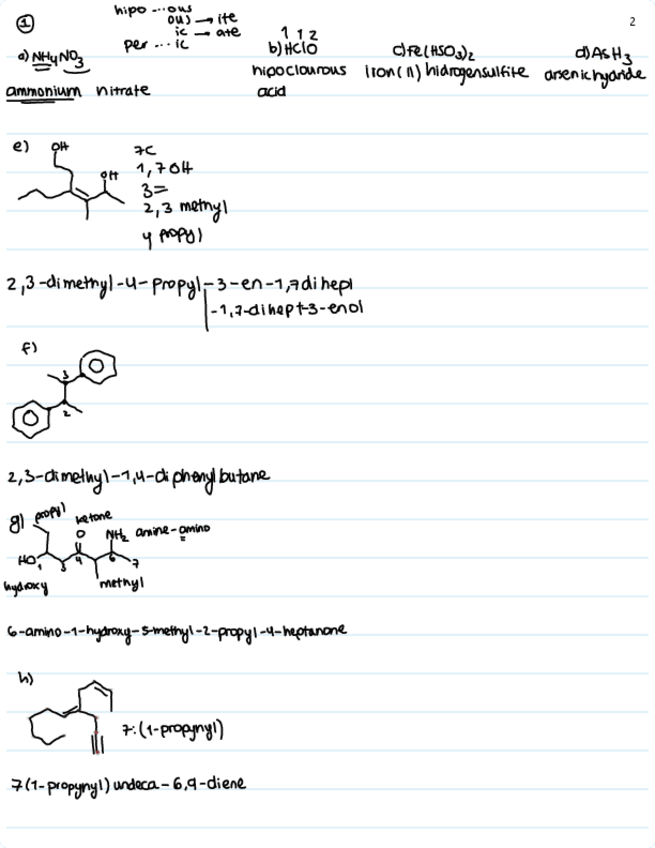 ① hipo ... ous
ous → ite
ic → ate
per ... ic
2
a) NH4NO3
ammonium nitrate
1 1 2
b) HClO
hipoclourous
acid
c) Fe(HSO3)2
iron(II) hidrogensulfite
d) AsH3
arsenichydride
e) OH
OH
7C
1,7 OH
3=
2,3 methyl
4 propyl
2,3-dimethyl-4-propyl-3-en-1,7dihepl
-1,7-dihept-3-enol
f)
3
2
2,3-dimethyl-1,4-diphenylbutane
g) propyl ketone
O NH2 amine-amino
HO 1 3 4 6 7
hydroxy methyl
6-amino-1-hydroxy-5-methyl-2-propyl-4-heptanone
h)
7:(1-propynyl)
7(1-propynyl)undeca-6,9-diene